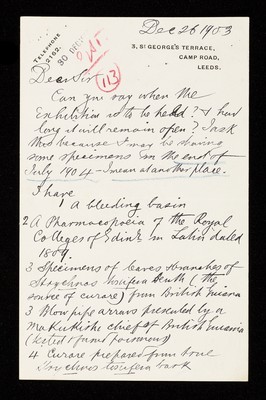 Dec 26 1903
TELEPHONE
2162.
30 DEC
3, ST GEORGE'S TERRACE,
CAMP ROAD,
LEEDS.
113
Dear Sir
Can you say when the
Exhibition is to be held? & how
long it will remain open? I ask
this because I may be showing
some specimens in the end of
July 1904 - I mean at another place.
I have
1 A bleeding basin
2 A Pharmacopoeia of the Royal
Colleges of Edinb in Latin dated
18
3 Specimens of leaves & branches of
Strychnos toxifera (the
source of curare) from British Guiana
3 Blow pipe arrows presented by a
Makukishi chief of British Guiana
(tested & found poisonous)
4 Curare prepared from some
Strychnos toxifera bark